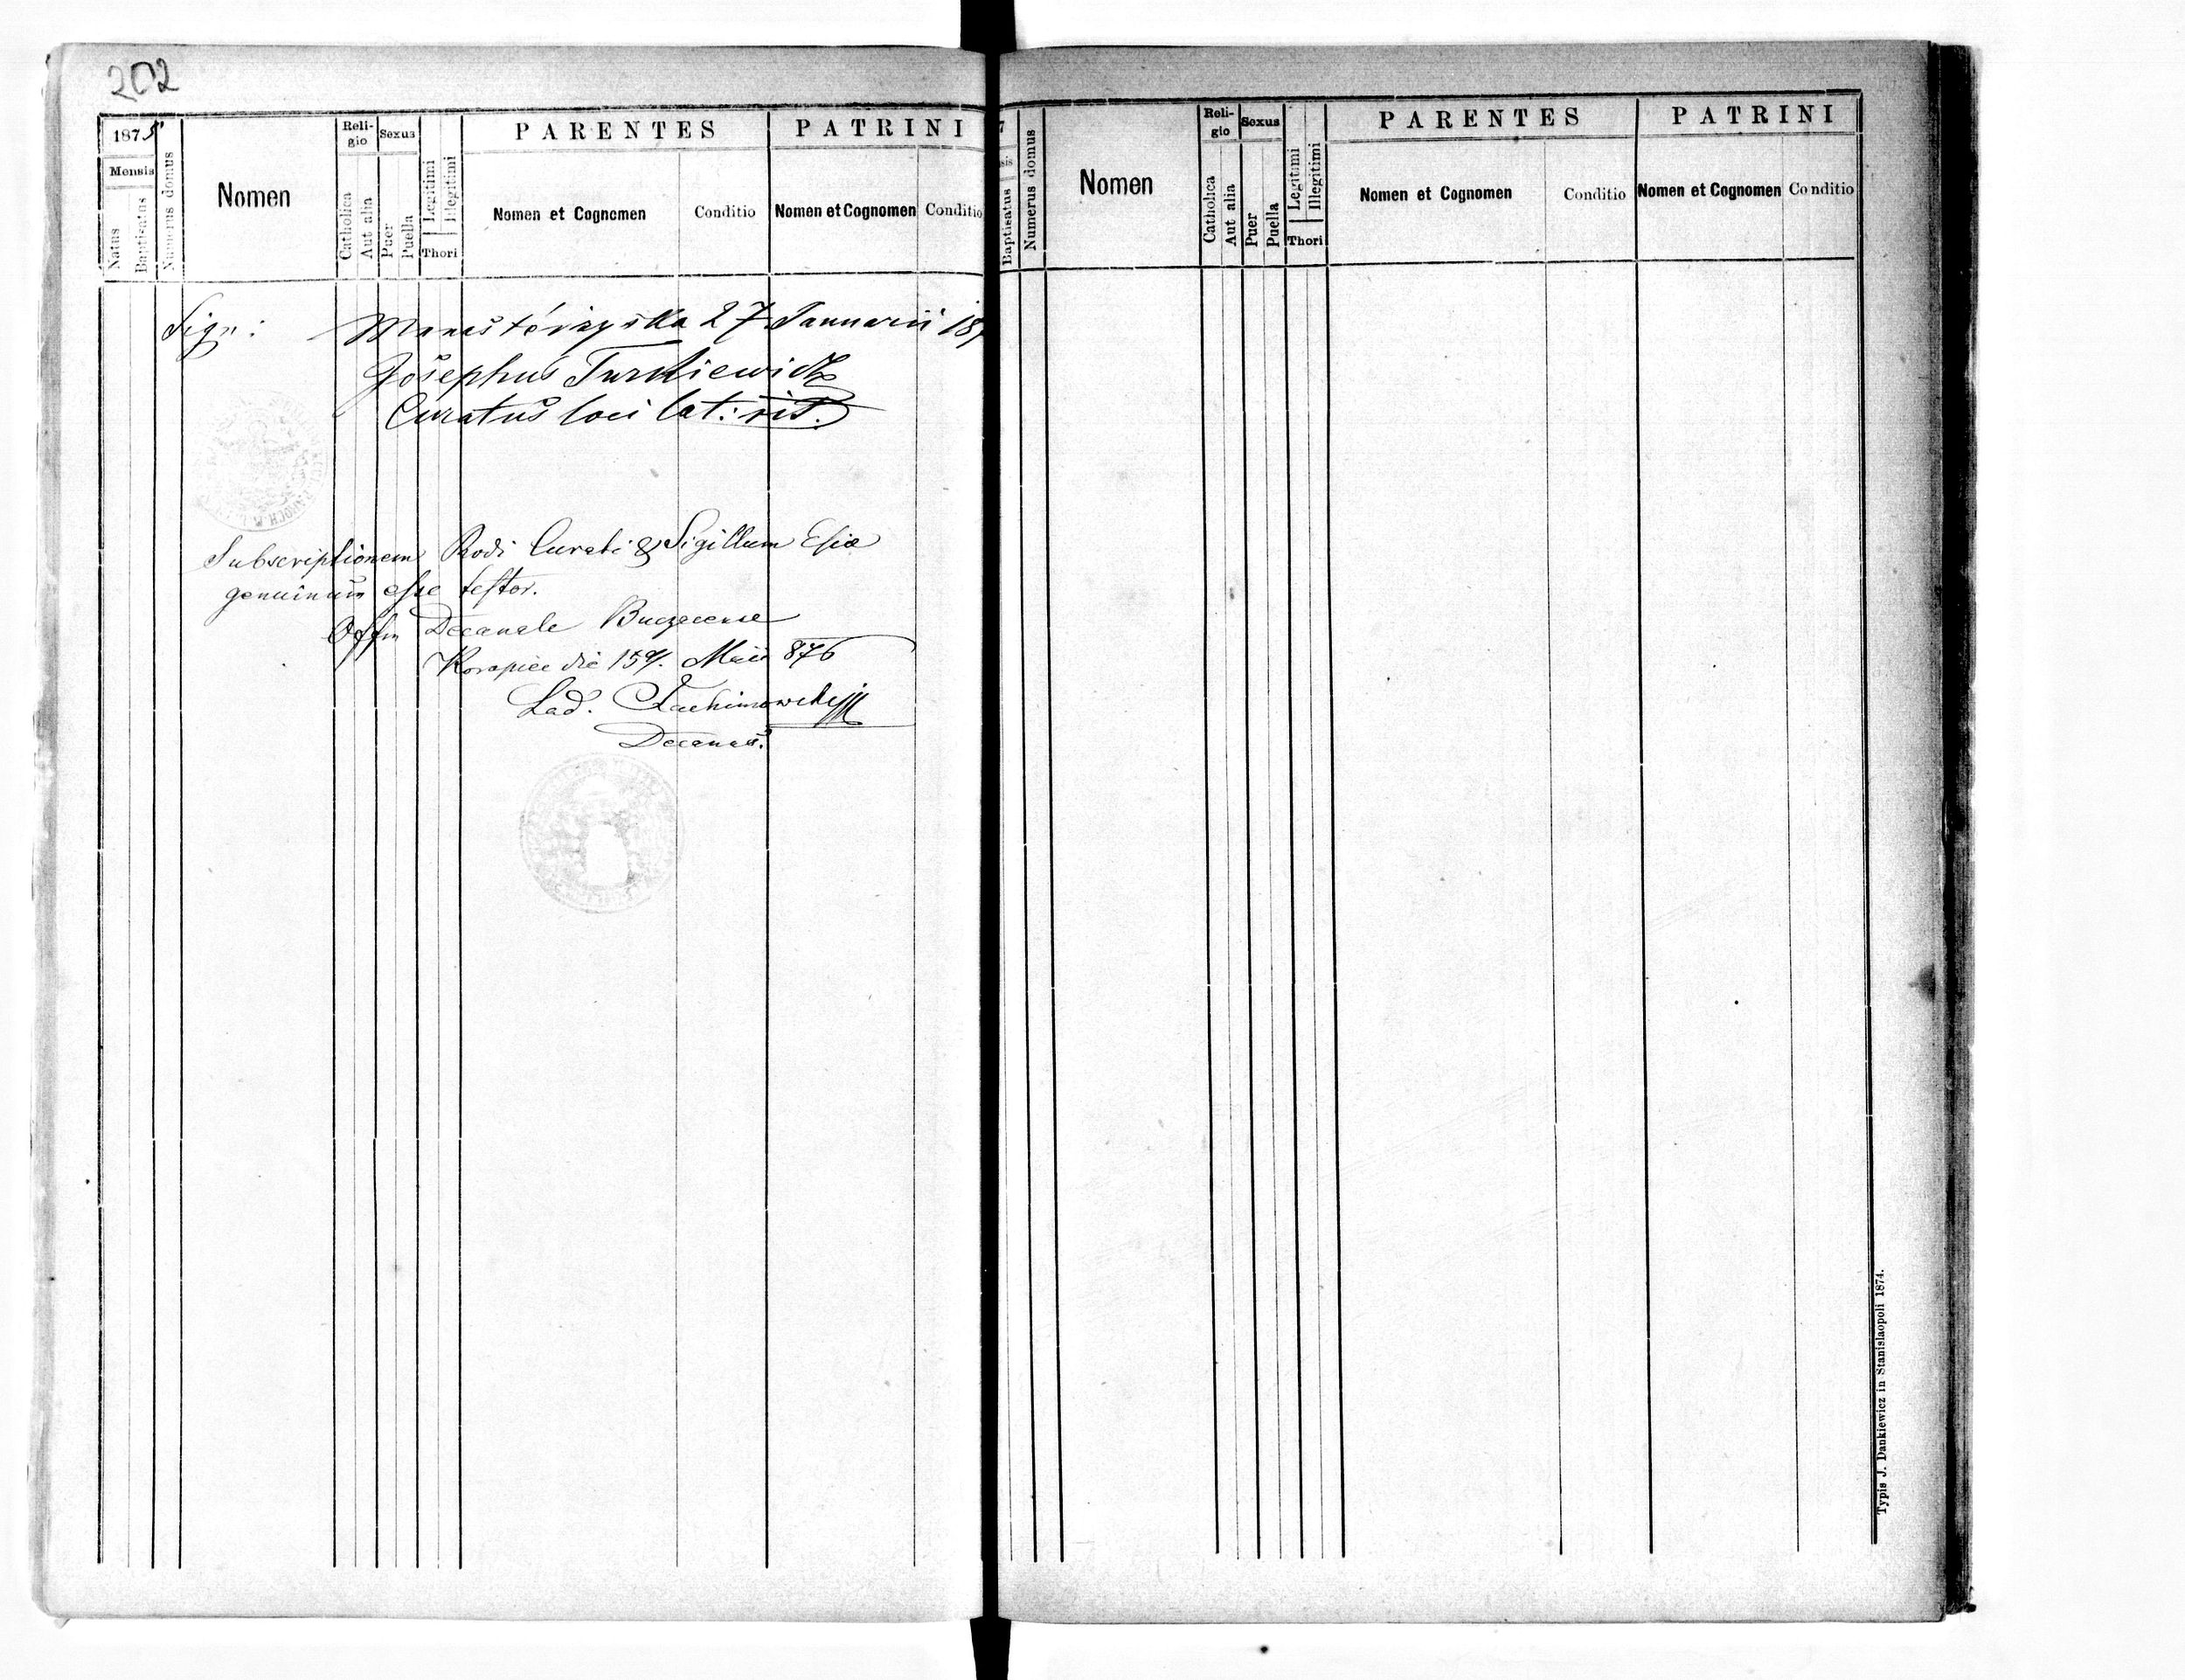 202
1875
Mensis
Natus
Baptisatus
Numerus domus
Nomen
Reli-
gio
Catholica
Aut alia
Sexus
Puer
Puella
Legitimi
Illegitimi
Thori
PARENTES
Nomen et Cognomen
Conditio
PATRINI
Nomen et Cognomen
Conditio
Sign: Manastérzyska 27 Januarii 187
Josephus Turkiewicz
Curatus loci lat: rit.
Subscriptionem Rvdi Curati & Sigillum Esiæ
genuinum esse testor.
Offm Decanale Buczacense
Koropiec die 15/. Maii 876
Lad.
Decanus.
7
sis
Baptisatus
Numerus domus
Nomen
Reli-
gio
Catholica
Aut alia
Sexus
Puer
Puella
Legitimi
Illegitimi
Thori
PARENTES
Nomen et Cognomen
Conditio
PATRINI
Nomen et Cognomen
Conditio
Typis J. Dankiewicz in Stanislaopoli 1874.